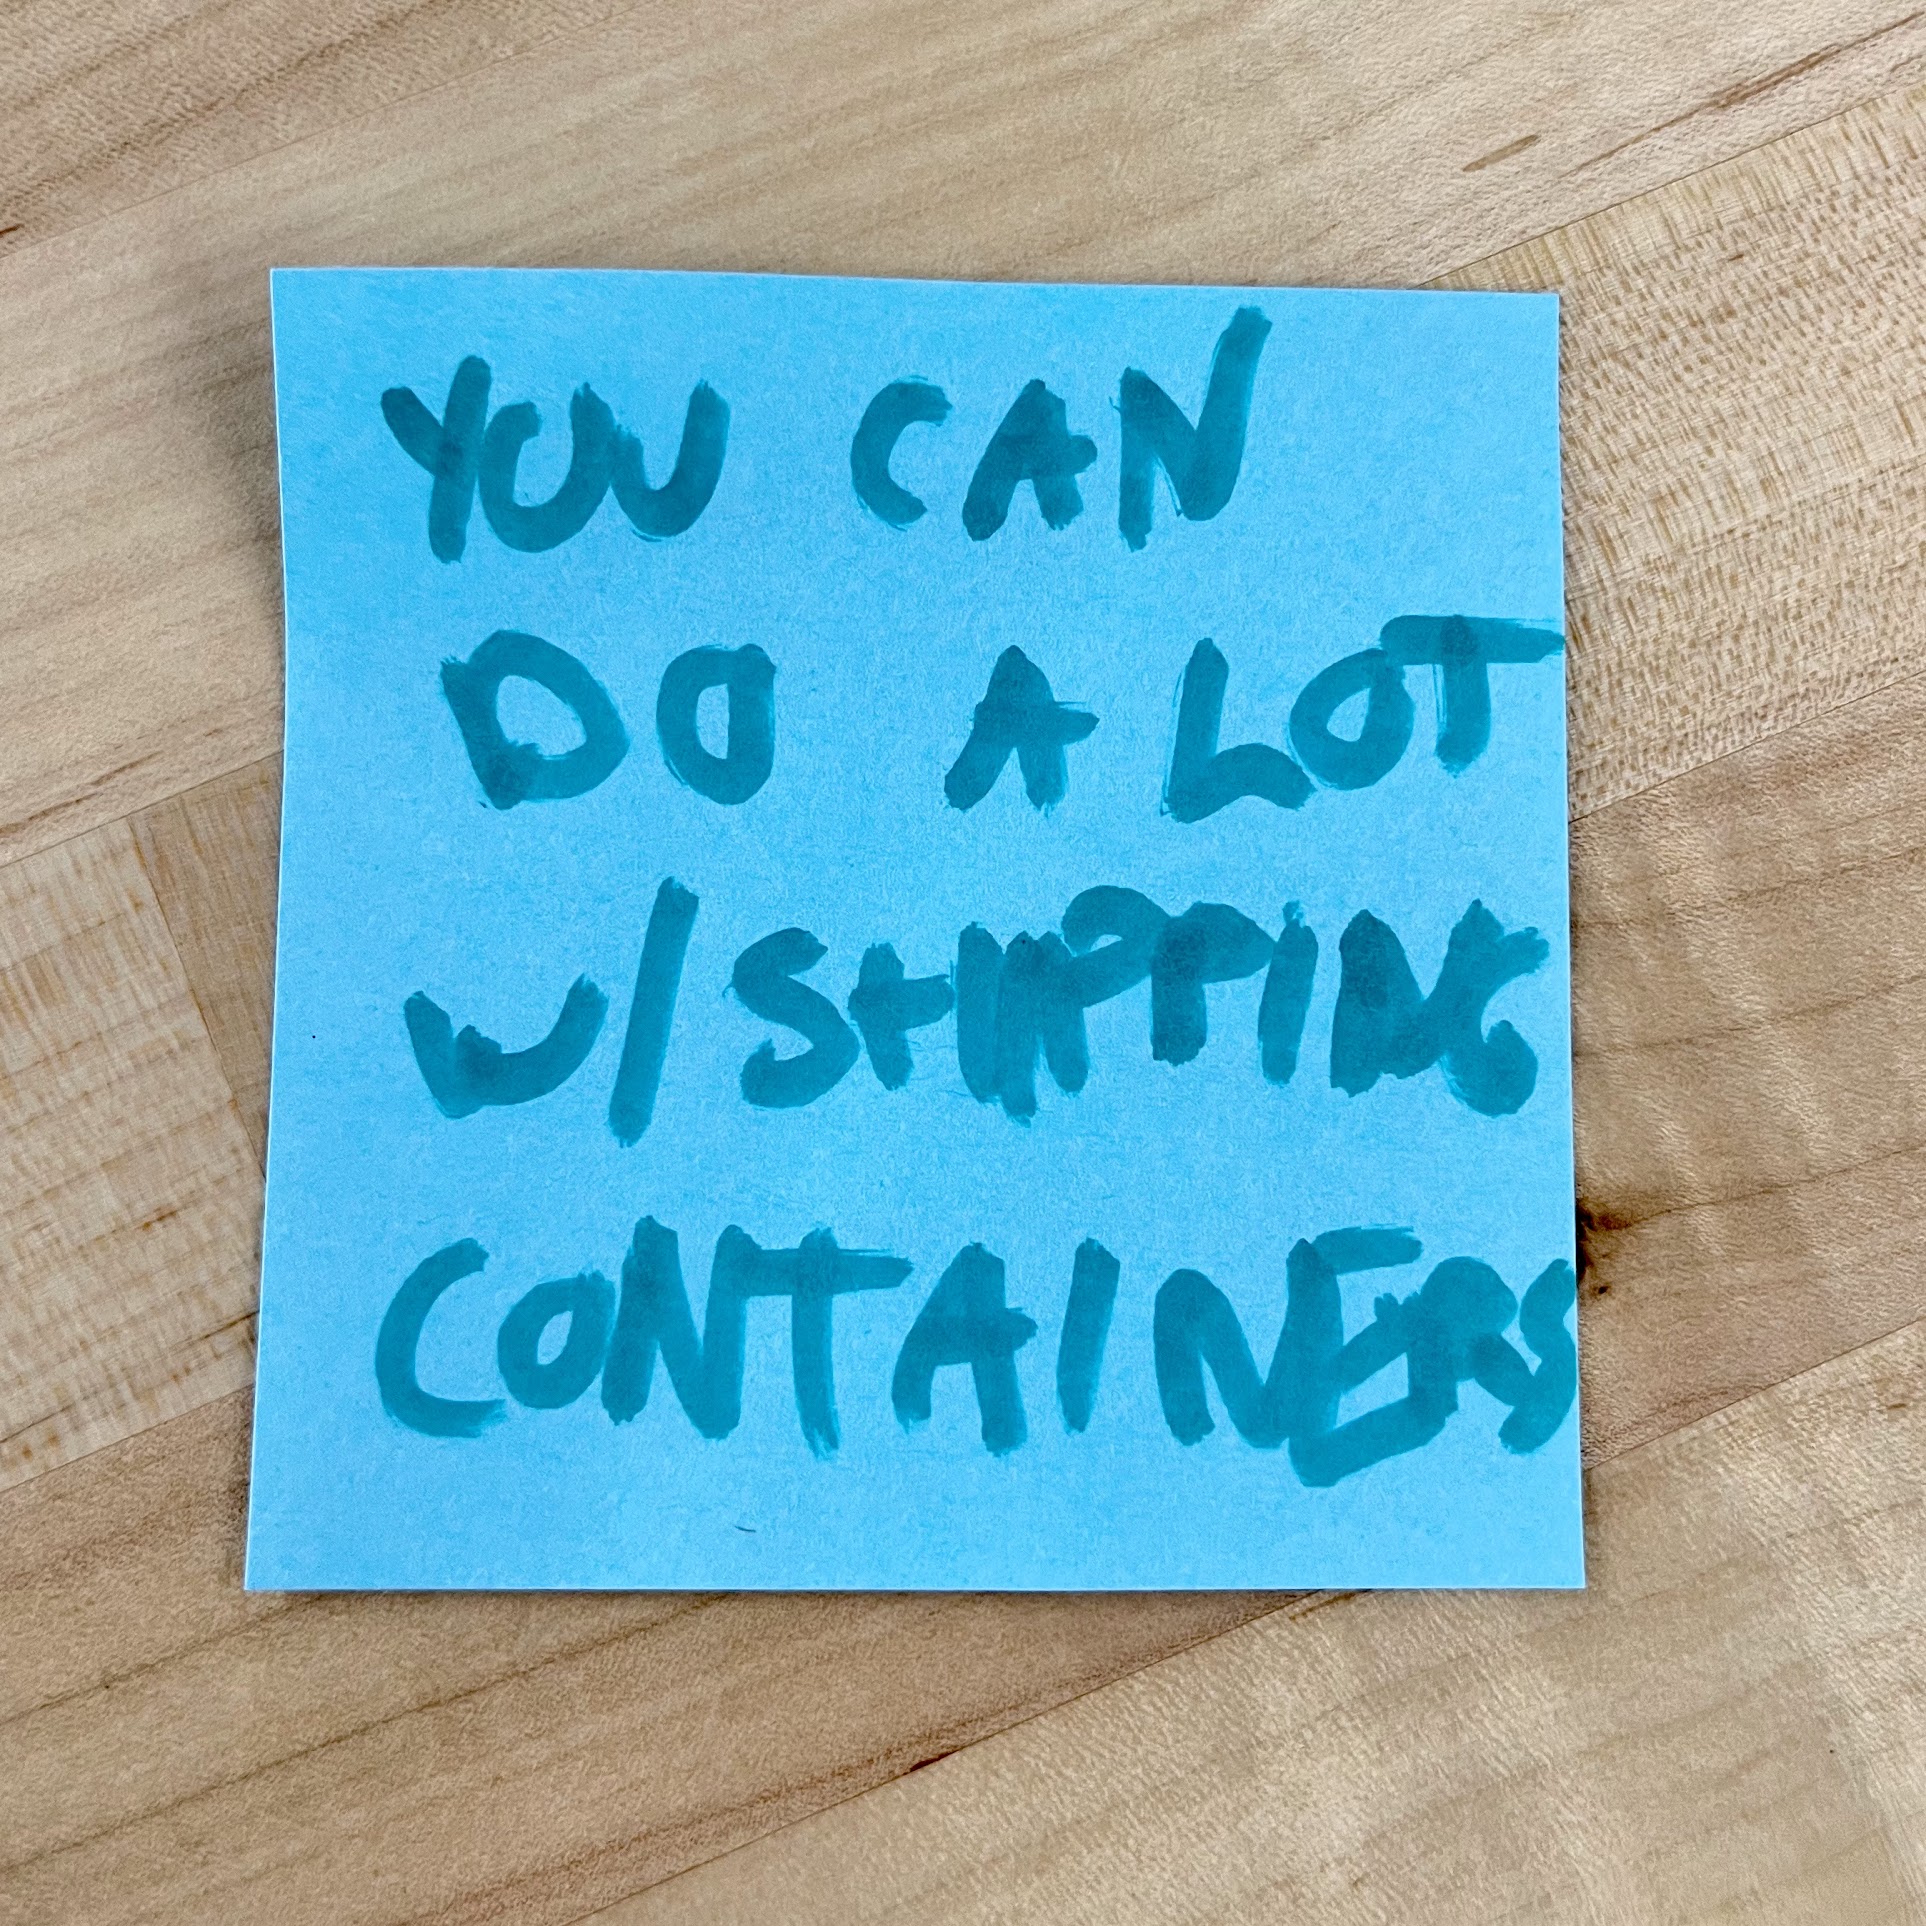 YOU CAN
DO A LOT
W/ SHIPPING
CONTAINERS